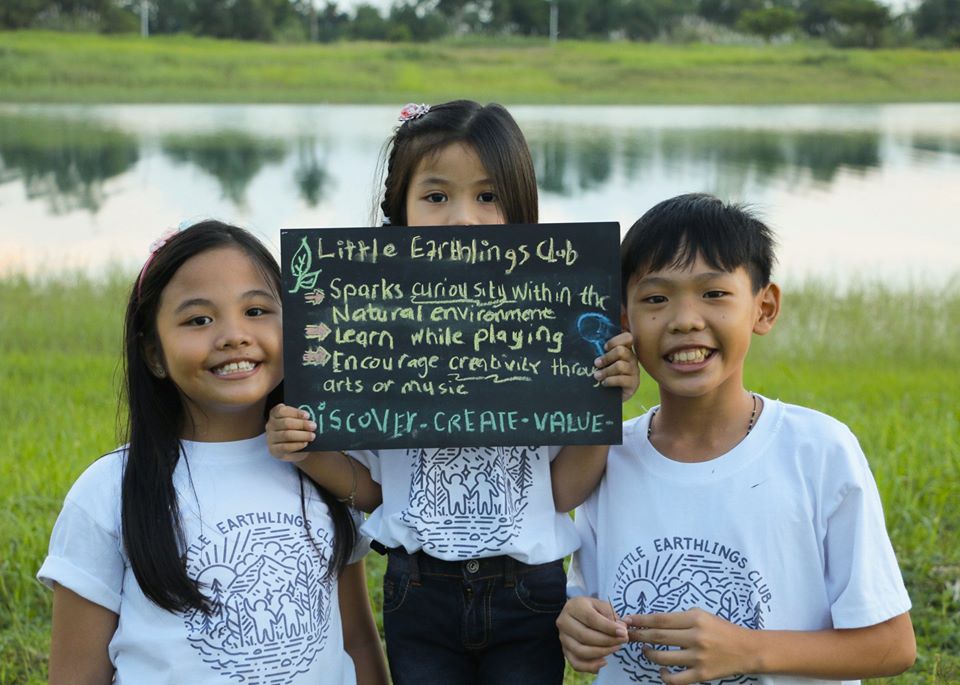 Little Earthlings Club
Sparks curiosity within the
Natural environment
Learn while playing
Encourage creativity throu
arts or music
DISCOVER - CREATE - VALUE -
LITTLE EARTHLINGS CLUB
LITTLE EARTHLINGS CLUB